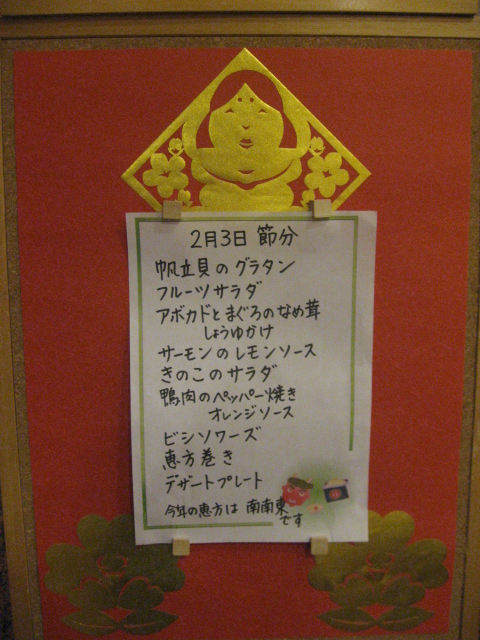 2月3日 節分
帆立貝のグラタン
フルーツサラダ
アボカドとまぐろのなめ茸
しょうゆかけ
サーモンのレモンソース
きのこのサラダ
鴨肉のペッパー焼き
オレンジソース
ビシソワーズ
恵方巻き
デザートプレート
今年の恵方は 南南東
です